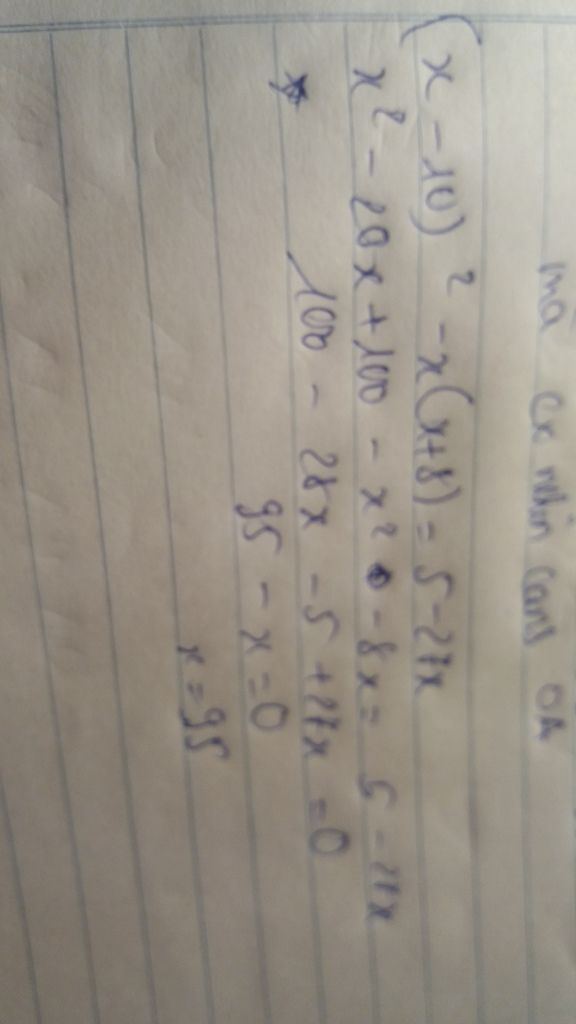 mà cx nhìn
(x - 10)² - x(x+8) = 5 - 27x
x² - 20x + 100 - x² - 8x = 5 - 27x
100 - 28x - 5 + 27x = 0
95 - x = 0
x = 95